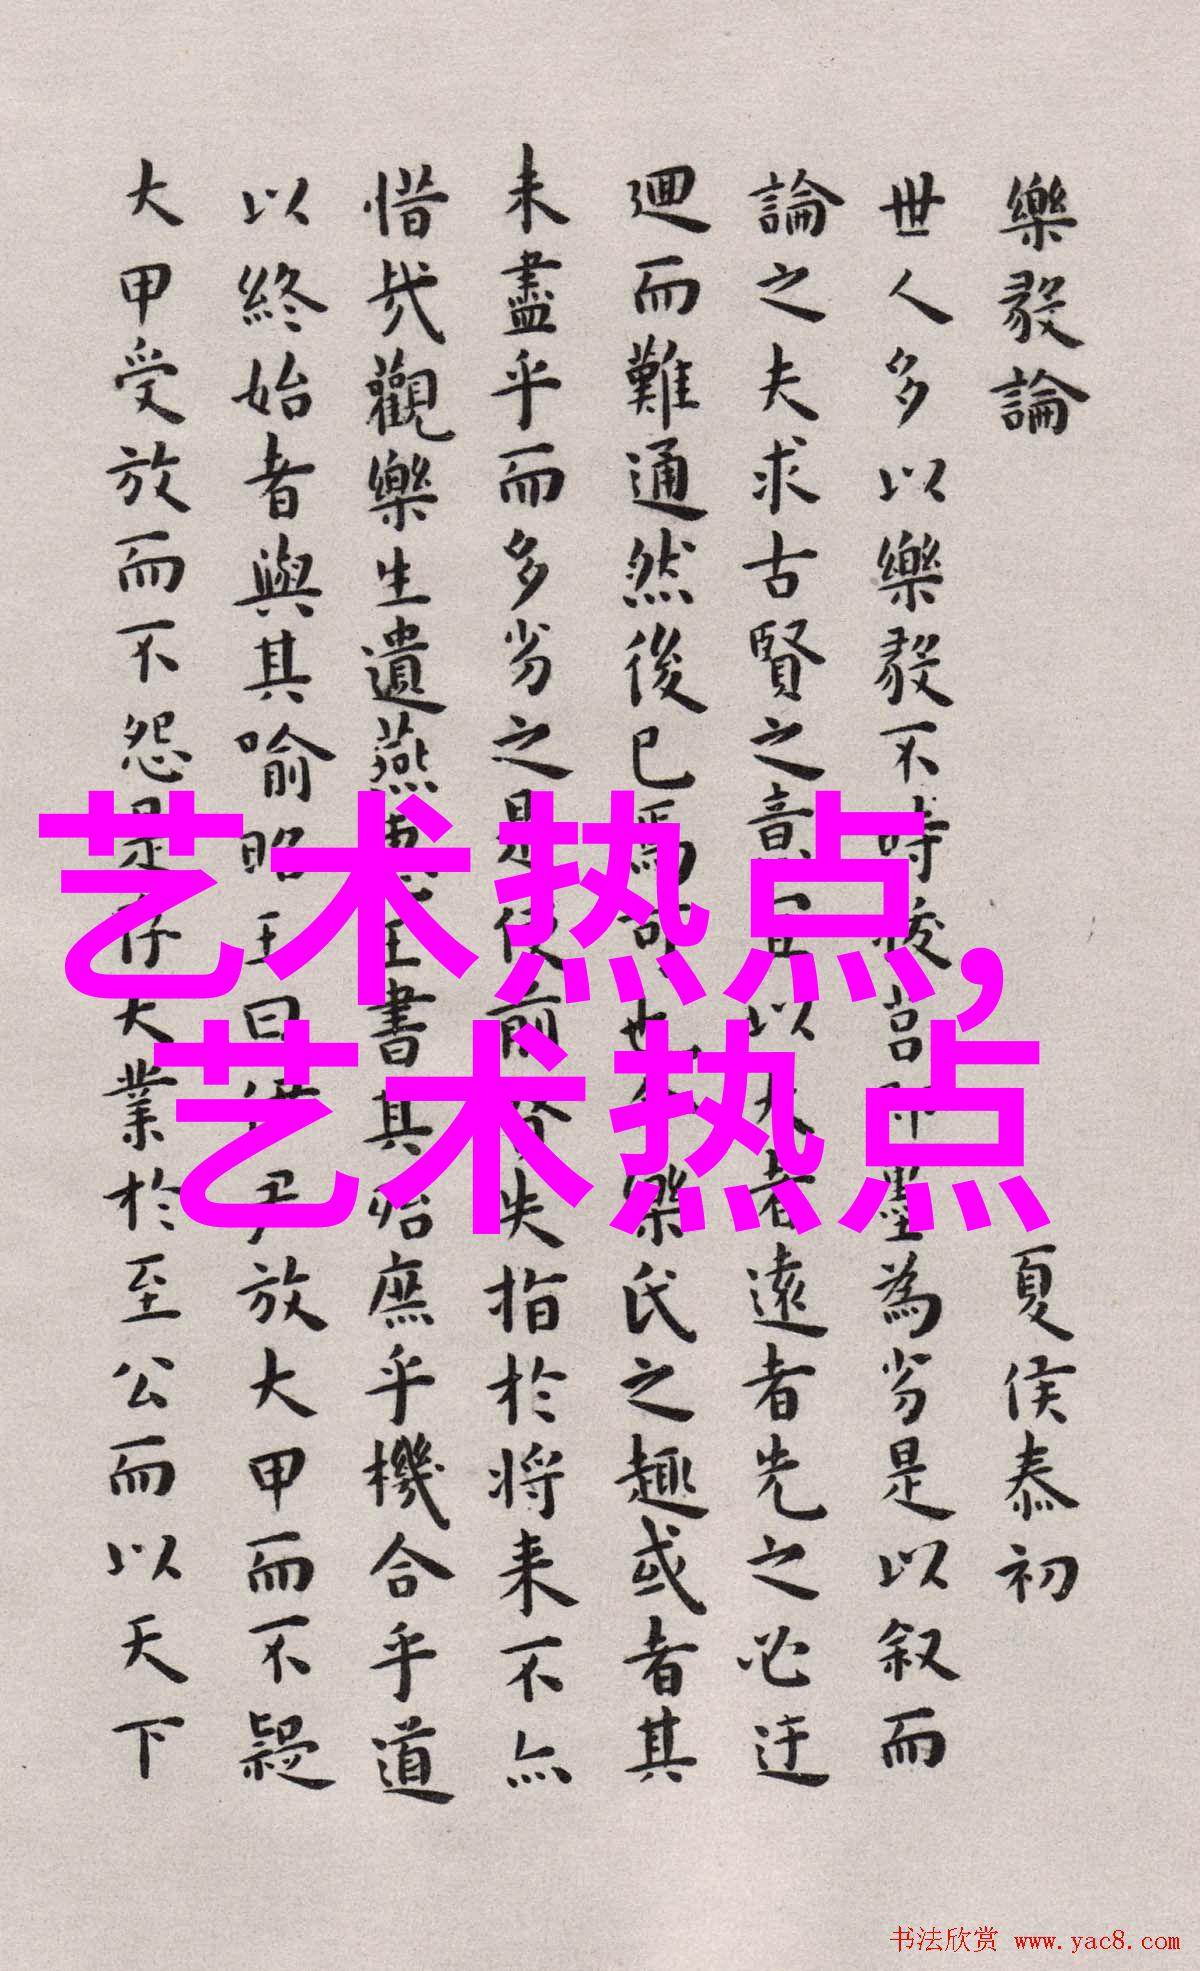 樂毅論 夏侯泰初
世人多以樂毅不時拔莒即墨為劣是以叙而
論之夫求古賢之意宜以大者遠者先之必迂
迴而難通然後已焉可也今樂氏之趣或者其
未盡乎而多劣之是使前賢失指於将来不亦
惜哉觀樂生遺燕惠王書其殆庶乎機合乎道
以終始者與其喻昭王曰伊尹放大甲而不疑
大甲受放而不怨是存大業於至公而以天下
艺术热点,
艺术热点
书法欣赏 www.yac8.com